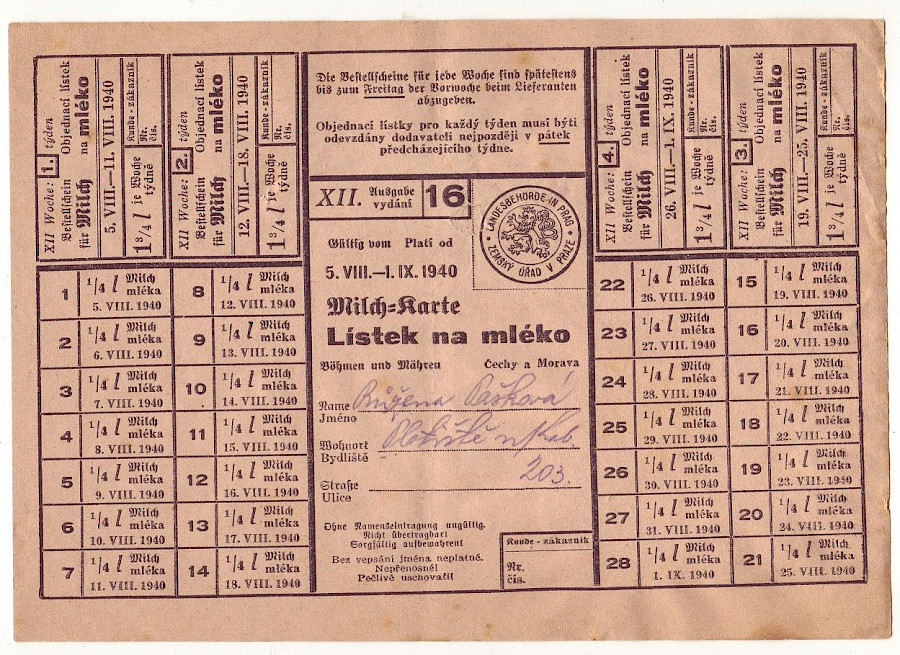 XII Woche: 1. týden
Bestellschein Objednací lístek
für Milch na mléko
5. VIII.—11. VIII. 1940
Kunde - zákazník
Nr.
čís.
1 3/4 l je Woche
týdně
XII Woche: 2. týden
Bestellschein Objednací lístek
für Milch na mléko
12. VIII.—18. VIII. 1940
Kunde - zákazník
Nr.
čís.
1 3/4 l je Woche
týdně
Die Bestellscheine für jede Woche sind spätestens
bis zum Freitag der Vorwoche beim Lieferanten
abzugeben.
Objednací lístky pro každý týden musí býti
odevzdány dodavateli nejpozději v pátek
předcházejícího týdne.
XII. Ausgabe
vydání 16
LANDESBEHÖRDE-IN PRAG
ZEMSKÝ ÚŘAD V PRAZE
Gültig vom Platí od
5. VIII.—1. IX. 1940
Milch-Karte
Lístek na mléko
Böhmen und Mähren Čechy a Morava
Name Růžena Pašková
Jméno
Wohnort
Bydliště
203.
Straße
Ulice
Ohne Namenseintragung ungültig.
Nicht übertragbar!
Sorgfältig aufbewahren!
Bez vepsání jména neplatné.
Nepřenosné!
Pečlivě uschovati!
Kunde - zákazník
Nr.
čís.
XII Woche: 4. týden
Bestellschein Objednací lístek
für Milch na mléko
26. VIII.—1. IX. 1940
Kunde - zákazník
Nr.
čís.
1 3/4 l je Woche
týdně
XII Woche: 3. týden
Bestellschein Objednací lístek
für Milch na mléko
19. VIII.—25. VIII. 1940
Kunde - zákazník
Nr.
čís.
1 3/4 l je Woche
týdně
1 1/4 l Milch
mléka
5. VIII. 1940
2 1/4 l Milch
mléka
6. VIII. 1940
3 1/4 l Milch
mléka
7. VIII. 1940
4 1/4 l Milch
mléka
8. VIII. 1940
5 1/4 l Milch
mléka
9. VIII. 1940
6 1/4 l Milch
mléka
10. VIII. 1940
7 1/4 l Milch
mléka
11. VIII. 1940
8 1/4 l Milch
mléka
12. VIII. 1940
9 1/4 l Milch
mléka
13. VIII. 1940
10 1/4 l Milch
mléka
14. VIII. 1940
11 1/4 l Milch
mléka
15. VIII. 1940
12 1/4 l Milch
mléka
16. VIII. 1940
13 1/4 l Milch
mléka
17. VIII. 1940
14 1/4 l Milch
mléka
18. VIII. 1940
22 1/4 l Milch
mléka
26. VIII. 1940
23 1/4 l Milch
mléka
27. VIII. 1940
24 1/4 l Milch
mléka
28. VIII. 1940
25 1/4 l Milch
mléka
29. VIII. 1940
26 1/4 l Milch
mléka
30. VIII. 1940
27 1/4 l Milch
mléka
31. VIII. 1940
28 1/4 l Milch
mléka
1. IX. 1940
15 1/4 l Milch
mléka
19. VIII. 1940
16 1/4 l Milch
mléka
20. VIII. 1940
17 1/4 l Milch
mléka
21. VIII. 1940
18 1/4 l Milch
mléka
22. VIII. 1940
19 1/4 l Milch
mléka
23. VIII. 1940
20 1/4 l Milch
mléka
24. VIII. 1940
21 1/4 l Milch
mléka
25. VIII. 1940